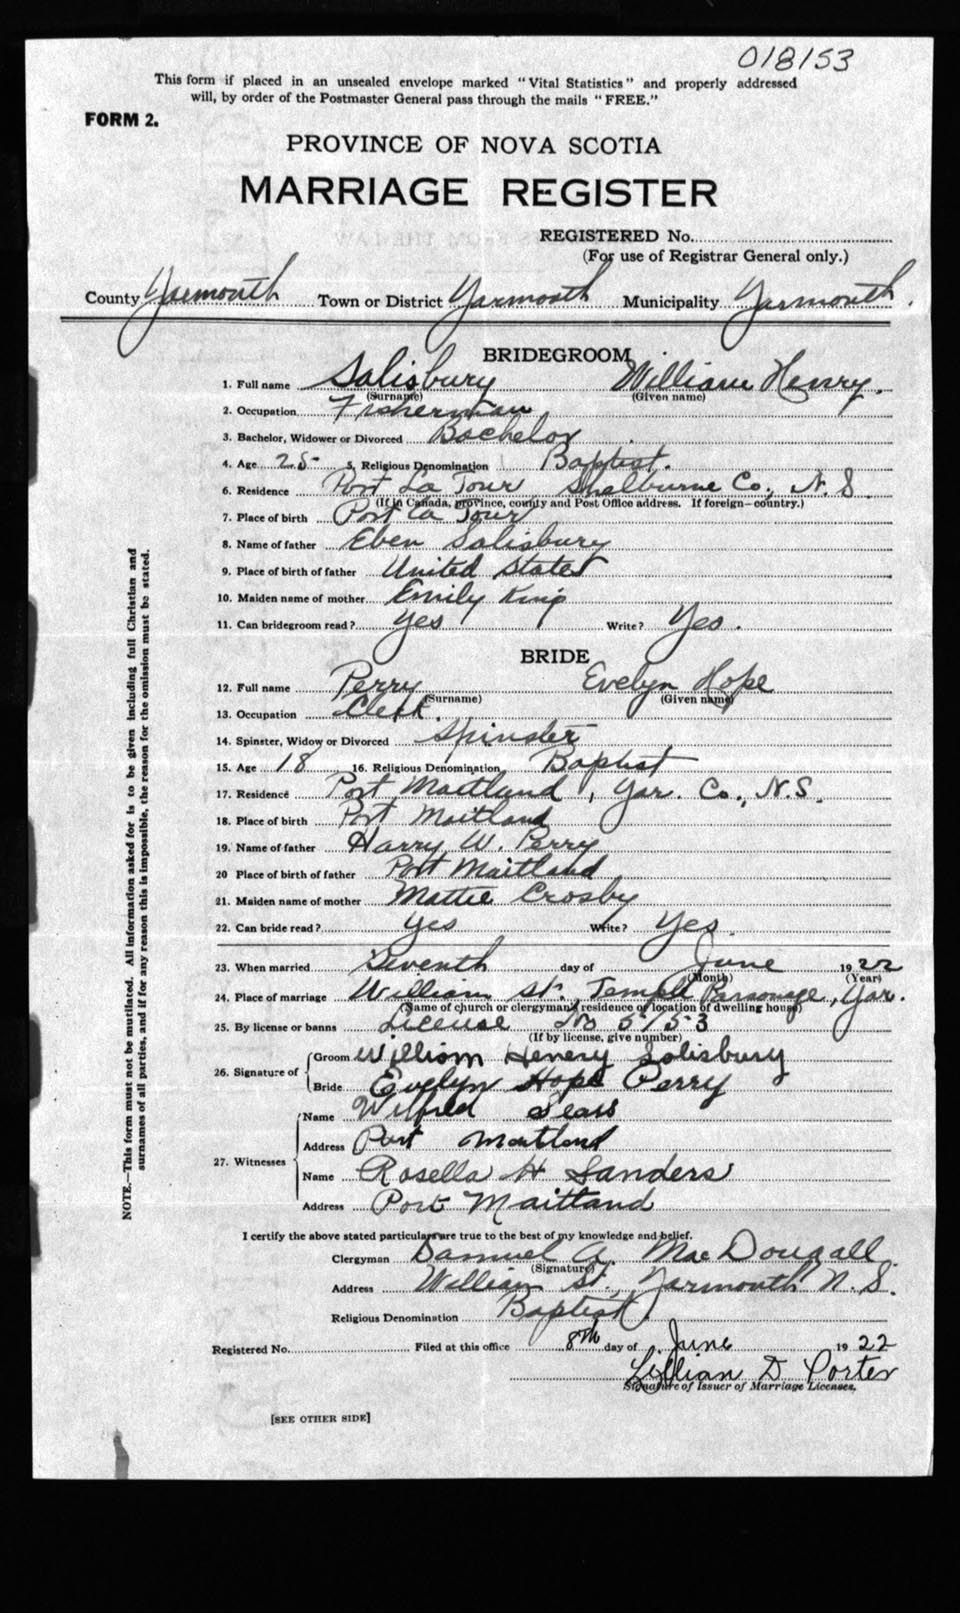 018153
This form if placed in an unsealed envelope marked "Vital Statistics" and properly addressed
will, by order of the Postmaster General pass through the mails "FREE."
FORM 2.
PROVINCE OF NOVA SCOTIA
MARRIAGE REGISTER
REGISTERED No.
(For use of Registrar General only.)
County Yarmouth Town or District Yarmouth Municipality Yarmouth.
BRIDEGROOM
1. Full name Salisbury William Henry.
(Surname) (Given name)
2. Occupation Fisherman
3. Bachelor, Widower or Divorced Bachelor
4. Age 25 5. Religious Denomination Baptist.
6. Residence Port La Tour Shelburne Co., N.S.
(If in Canada, province, county and Post Office address. If foreign—country.)
7. Place of birth Port La Tour
8. Name of father Eben Salisbury
9. Place of birth of father United States
10. Maiden name of mother Emily King
11. Can bridegroom read? Yes Write? Yes.
BRIDE
12. Full name Perry Evelyn Hope
(Surname) (Given name)
13. Occupation Clerk.
14. Spinster, Widow or Divorced Spinster
15. Age 18 16. Religious Denomination Baptist
17. Residence Port Maitland, Yar. Co., N.S.
18. Place of birth Port Maitland
19. Name of father Harry W. Perry
20 Place of birth of father Port Maitland
21. Maiden name of mother Mattie Crosby
22. Can bride read? Yes Write? Yes.
23. When married Seventh day of June 1922
(Month) (Year)
24. Place of marriage William St. Temple Parsonage, Yar.
(Name of church or clergyman's residence or location of dwelling house)
25. By license or banns License No 5153
(If by license, give number)
26. Signature of Groom William Henery Salisbury
Bride Evelyn Hope Perry
27. Witnesses
Name Wilfred Sears
Address Port Maitland
Name Rosella H Sanders
Address Port Maitland
I certify the above stated particulars are true to the best of my knowledge and belief.
Clergyman Samuel A. MacDougall.
(Signature)
Address William St., Yarmouth N.S.
Religious Denomination Baptist
Registered No. Filed at this office 8th day of June 1922
Lillian D Porter
Signature of Issuer of Marriage Licenses.
[SEE OTHER SIDE]
NOTE.—This form must not be mutilated. All information asked for is to be given including full Christian and
surnames of all parties, and if for any reason this is impossible, the reason for the omission must be stated.